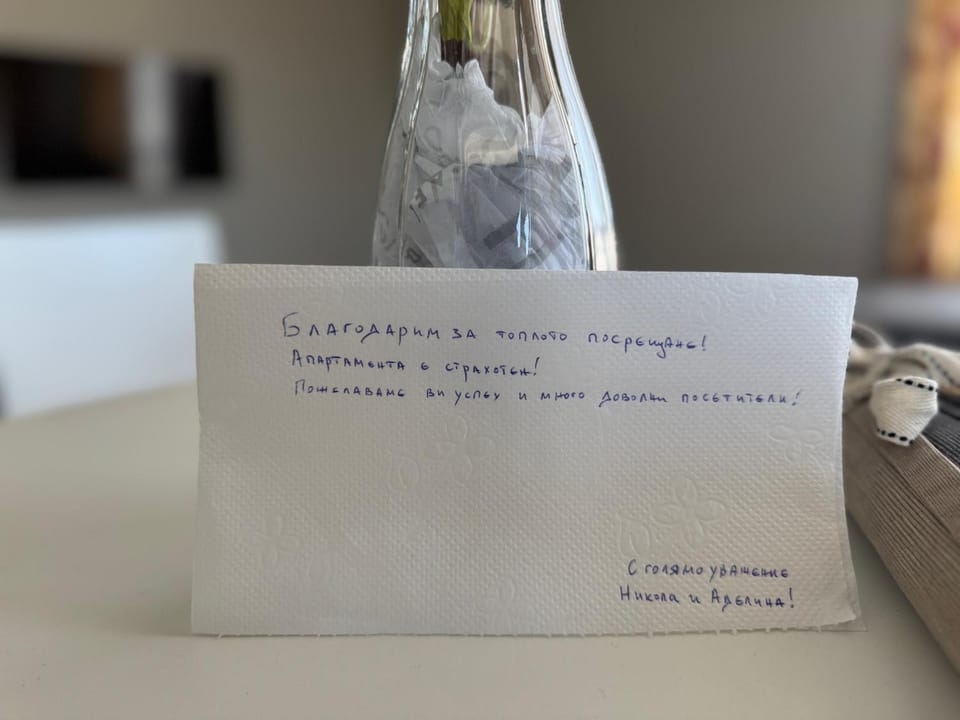 Благодарим за топлото посрещане!
Апартамента е страхотен!
Пожелаваме ви успех и много доволни посетители!
С голямо уважение
Никола и Аделина!